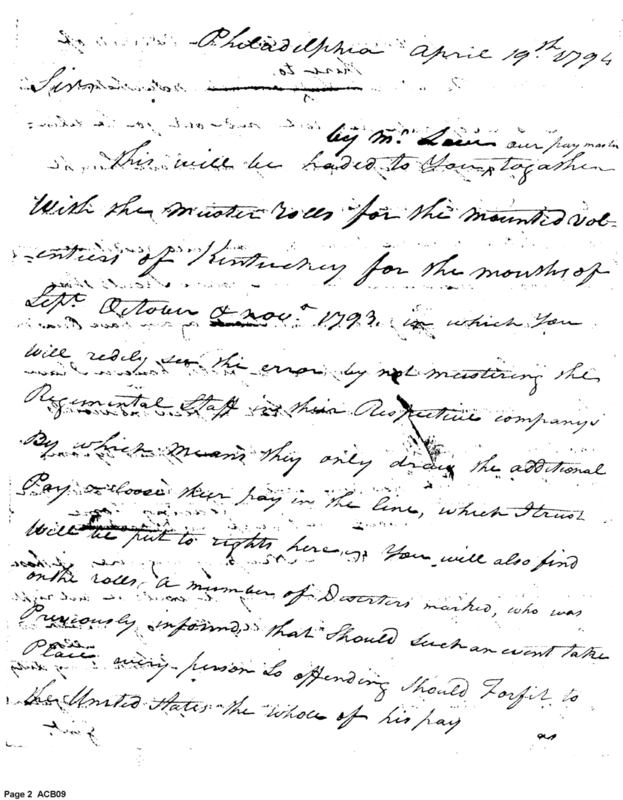 Philadelphia April 19th 1794
Sir
by Mr. our pay master
this will be haded to You togather
With the muster rolls for the mounted vol-
-entiers of Kentuckey for the months of
Sept. October & novr. 1793. in which You
will redily see the error by not mustering the
Regimental Staff in their Respective companys
By which means they only draw the additional
Pay & loose their pay in the line, which I trust
Will be put to rights here, You will also find
on the rolls, a number of Deserters marked, who was
Previously informd, that Should Such an event take
Place every person So offending Should Forfit to
the United States the whole of his pay
as
Page 2 ACB09